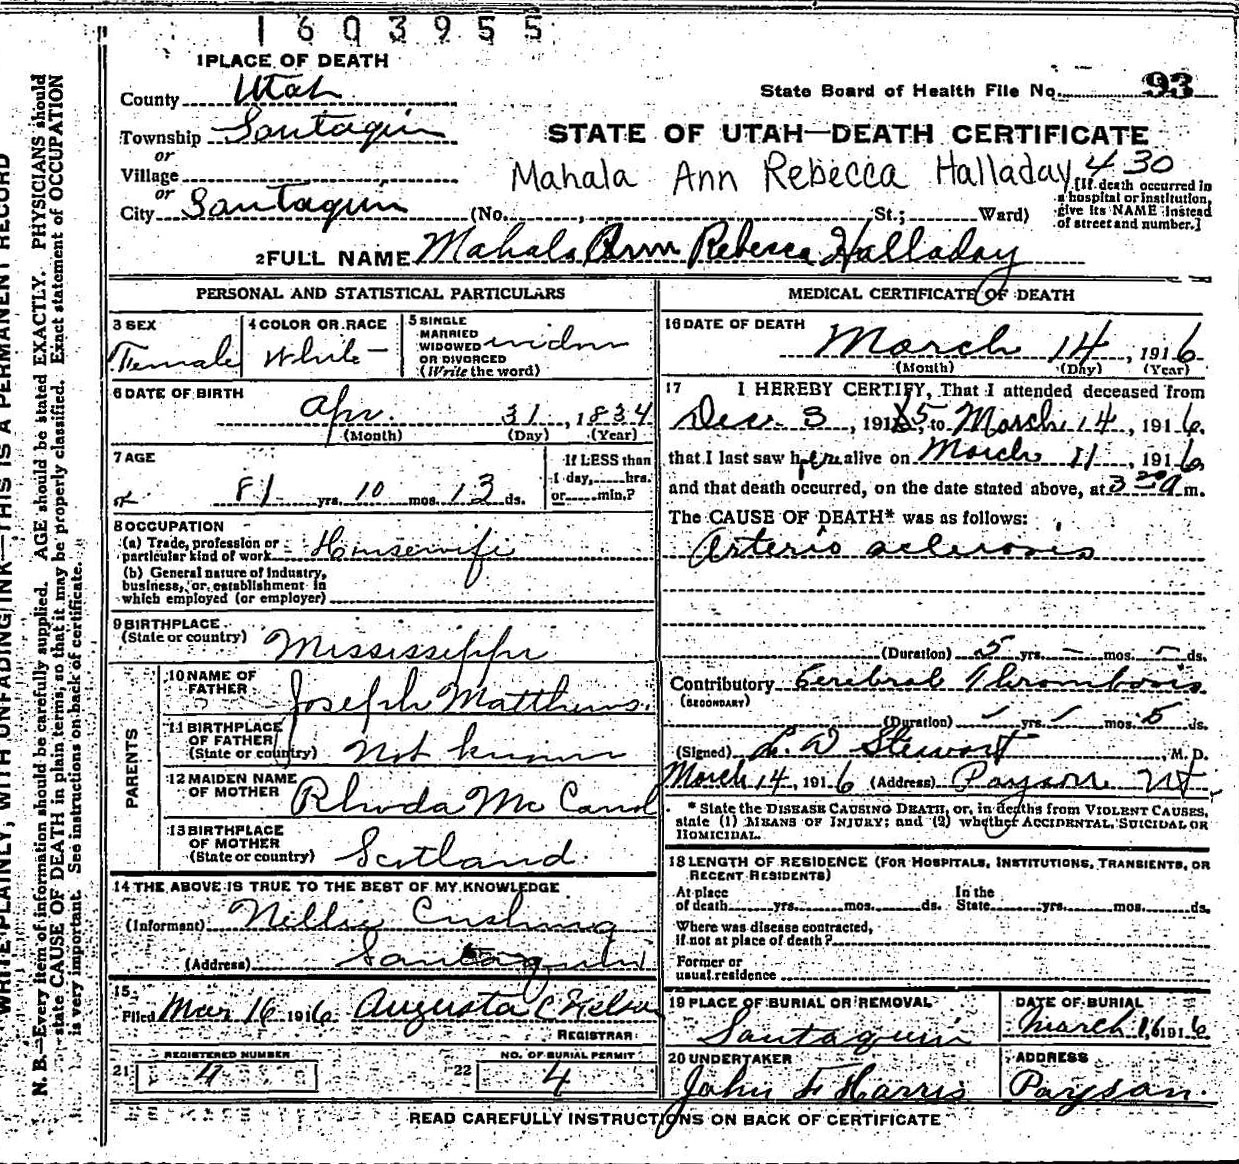 1603955
1 PLACE OF DEATH
County Utah
State Board of Health File No. 93
Township Santaquin
STATE OF UTAH—DEATH CERTIFICATE
or
Village
Mahala Ann Rebecca Halladay 430
or
City Santaquin (No. , St.; Ward)
[If death occurred in
a hospital or institution,
give its NAME instead
of street and number.]
2 FULL NAME Mahala Ann Rebecca Halladay
PERSONAL AND STATISTICAL PARTICULARS
3 SEX
Female
4 COLOR OR RACE
White
5 SINGLE
MARRIED
WIDOWED
OR DIVORCED
(Write the word)
widow
6 DATE OF BIRTH
Apr. 31, 1834
(Month) (Day) (Year)
7 AGE
81 yrs. 10 mos. 13 ds.
If LESS than
1 day, hrs.
or min.?
8 OCCUPATION
(a) Trade, profession or
particular kind of work Housewife
(b) General nature of Industry,
business, or establishment in
which employed (or employer)
9 BIRTHPLACE
(State or country) Mississippi
PARENTS
10 NAME OF
FATHER Joseph Matthews.
11 BIRTHPLACE
OF FATHER
(State or country) Not known
12 MAIDEN NAME
OF MOTHER Rhoda McCarrol
13 BIRTHPLACE
OF MOTHER
(State or country) Scotland
14 THE ABOVE IS TRUE TO THE BEST OF MY KNOWLEDGE
(Informant) Nellie Cushing
(Address) Santaquin
15
Filed Mar 16 1916 Augusta C Nelson
REGISTRAR
REGISTERED NUMBER
21 4
NO. OF BURIAL PERMIT
22 4
MEDICAL CERTIFICATE OF DEATH
16 DATE OF DEATH
March 14, 1916
(Month) (Day) (Year)
17 I HEREBY CERTIFY, That I attended deceased from
Dec. 3, 1915, to March 14, 1916,
that I last saw her alive on March 11, 1916,
and that death occurred, on the date stated above, at 3 30 a m.
The CAUSE OF DEATH* was as follows:
Arterio sclerosis
(Duration) 5 yrs. – mos. – ds.
Contributory Cerebral Thrombosis
(SECONDARY)
(Duration) yrs. mos. 5 ds.
(Signed) L. D Stewart, M. D.
March 14, 1916 (Address) Payson Ut
* State the DISEASE CAUSING DEATH, or, in deaths from VIOLENT CAUSES,
state (1) MEANS OF INJURY; and (2) whether ACCIDENTAL, SUICIDAL OR
HOMICIDAL.
18 LENGTH OF RESIDENCE (FOR HOSPITALS, INSTITUTIONS, TRANSIENTS, OR
RECENT RESIDENTS)
At place
of death yrs. mos. ds.
In the
State yrs. mos. ds.
Where was disease contracted,
if not at place of death?
Former or
usual residence
19 PLACE OF BURIAL OR REMOVAL
Santaquin
DATE OF BURIAL
March 16 1916
20 UNDERTAKER
John F Harris
ADDRESS
Payson.
READ CAREFULLY INSTRUCTIONS ON BACK OF CERTIFICATE
WRITE PLAINLY, WITH UNFADING INK—THIS IS A PERMANENT RECORD
N. B.—Every item of information should be carefully supplied. AGE should be stated EXACTLY. PHYSICIANS should
state CAUSE OF DEATH in plain terms, so that it may be properly classified. Exact statement of OCCUPATION
is very important. See instructions on back of certificate.